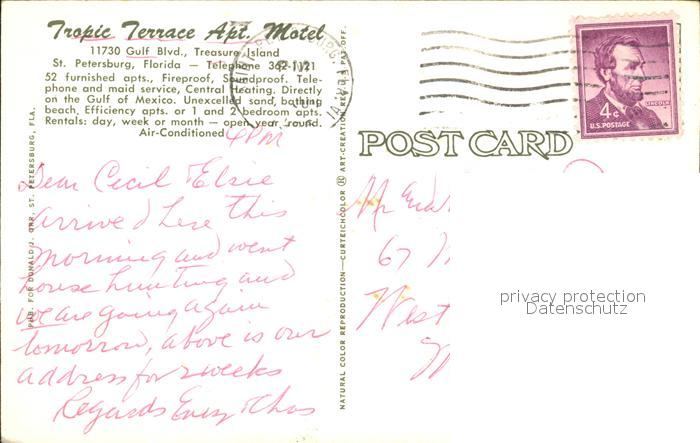 Tropic Terrace Apt. Motel
11730 Gulf Blvd., Treasure Island
St. Petersburg, Florida — Telephone 362-1121
52 furnished apts., Fireproof, Soundproof. Tele-
phone and maid service, Central Heating. Directly
on the Gulf of Mexico. Unexcelled sand, bathing
beach. Efficiency apts. or 1 and 2 bedroom apts.
Rentals: day, week or month — open year 'round.
Air-Conditioned
4PM
Dear Cecil Elsie
arrived here this
morning and went
house hunting and
we are going again
tomorrow, above is our
address for 2 weeks
Regards
PUB. FOR DONALD J. ORR, ST. PETERSBURG, FLA.
NATURAL COLOR REPRODUCTION—CURTEICHCOLOR ® ART-CREATION REG. U.S. PAT. OFF.
4¢
LINCOLN
U.S. POSTAGE
POST CARD
Mr
67
West
privacy protection
Datenschutz